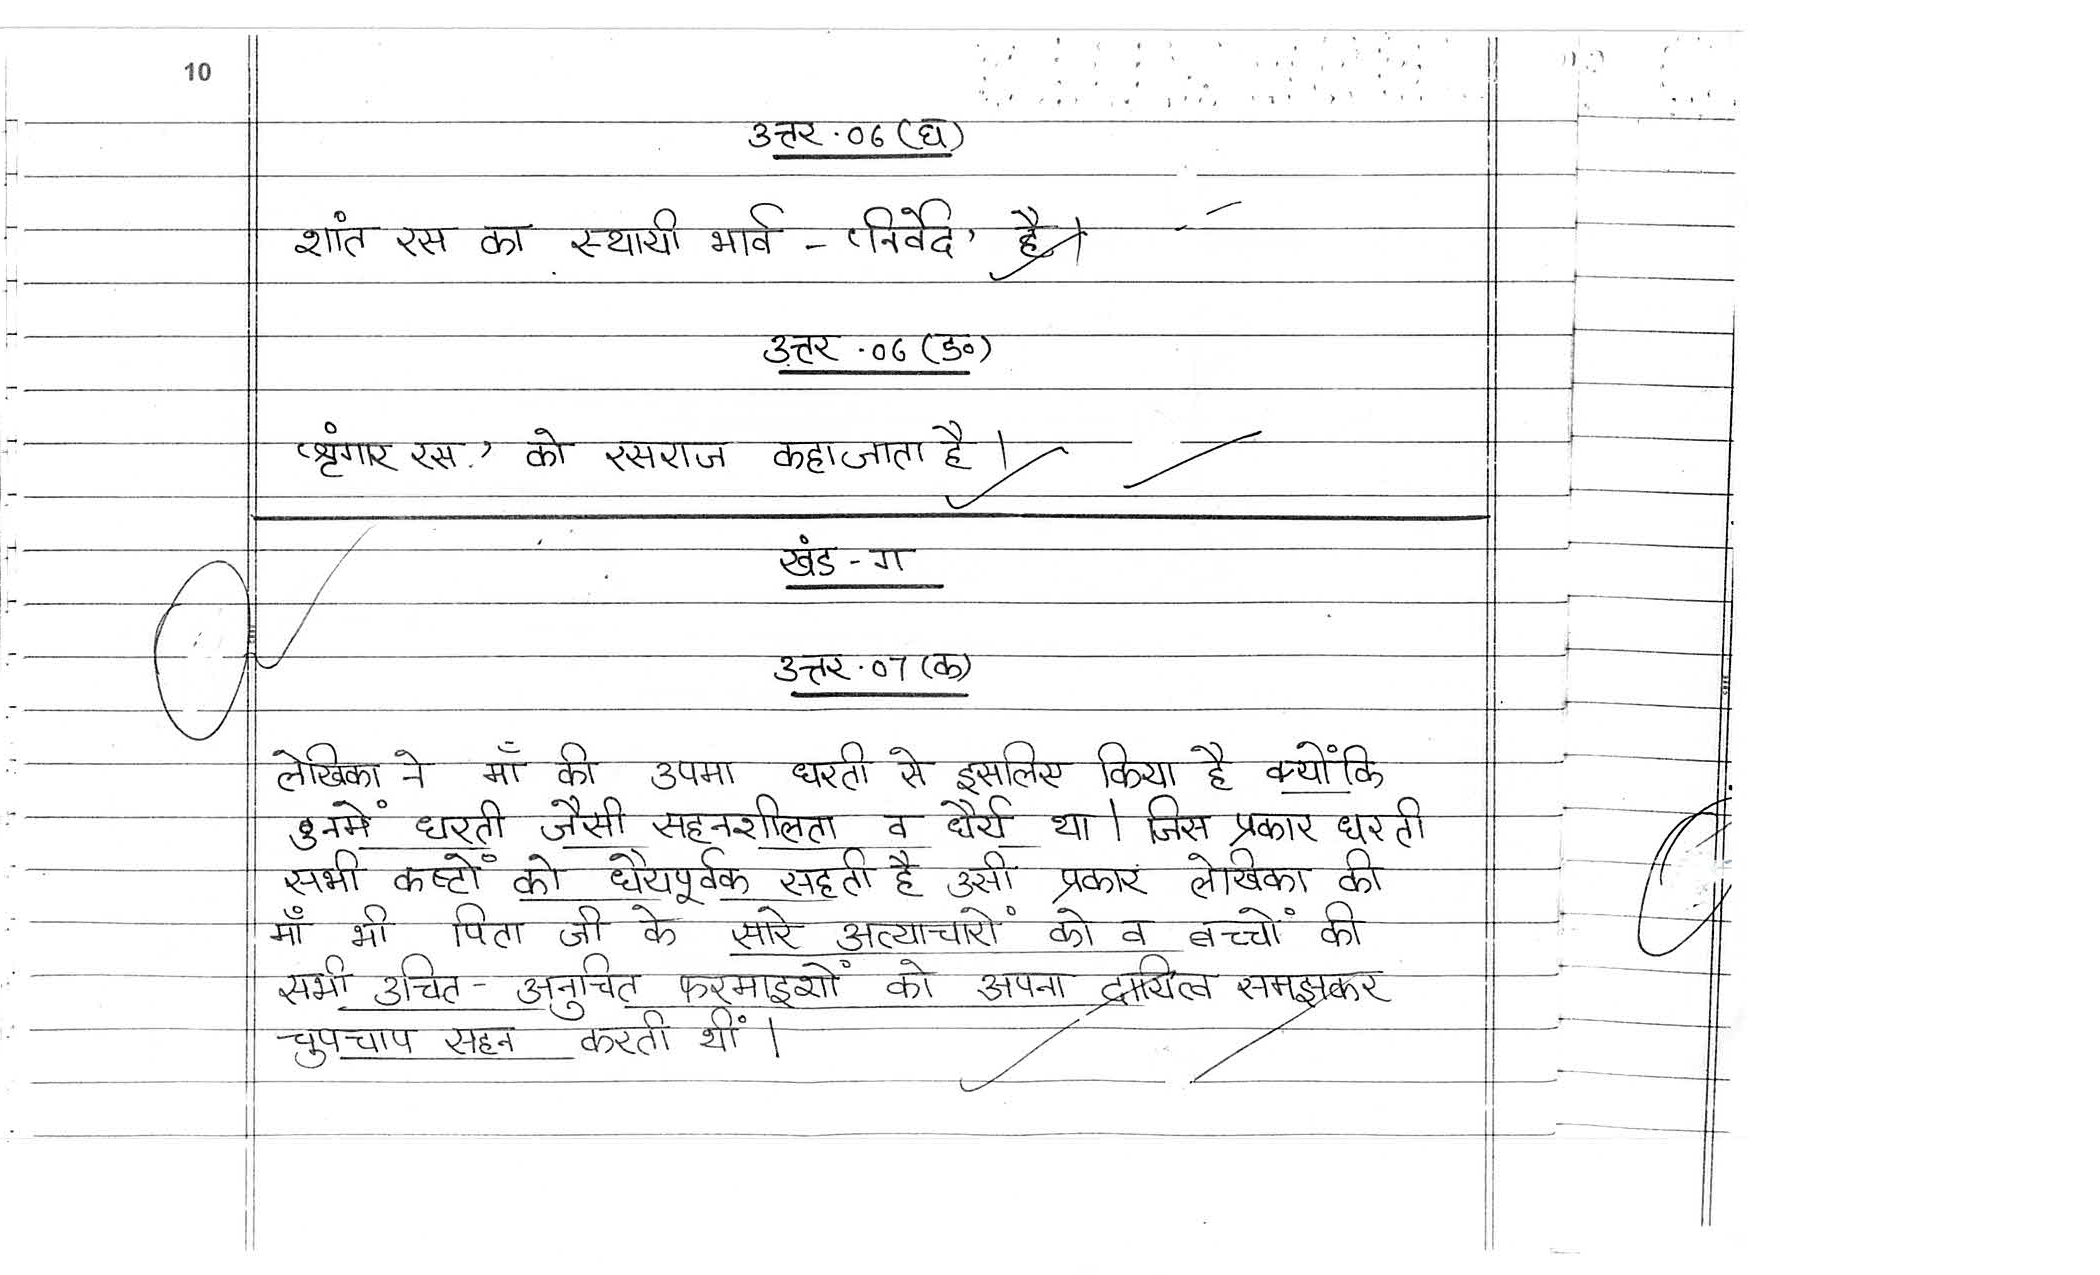 10
उत्तर.06(घ)
शांत रस का स्थायी भाव - 'निर्वेद' है।
उत्तर.06(ड०)
'श्रृंगार रस.' को रसराज कहा जाता है।
खंड-ग
उत्तर.07(क)
लेखिका ने माँ की उपमा धरती से इसलिए किया है क्योंकि
उनमें धरती जैसी सहनशीलता व धैर्य था। जिस प्रकार धरती
सभी कष्टों को धैर्यपूर्वक सहती है उसी प्रकार लेखिका की
माँ भी पिता जी के सारे अत्याचारों को व बच्चों की
सभी उचित-अनुचित फरमाइशों को अपना दायित्व समझकर
चुपचाप सहन करती थीं।